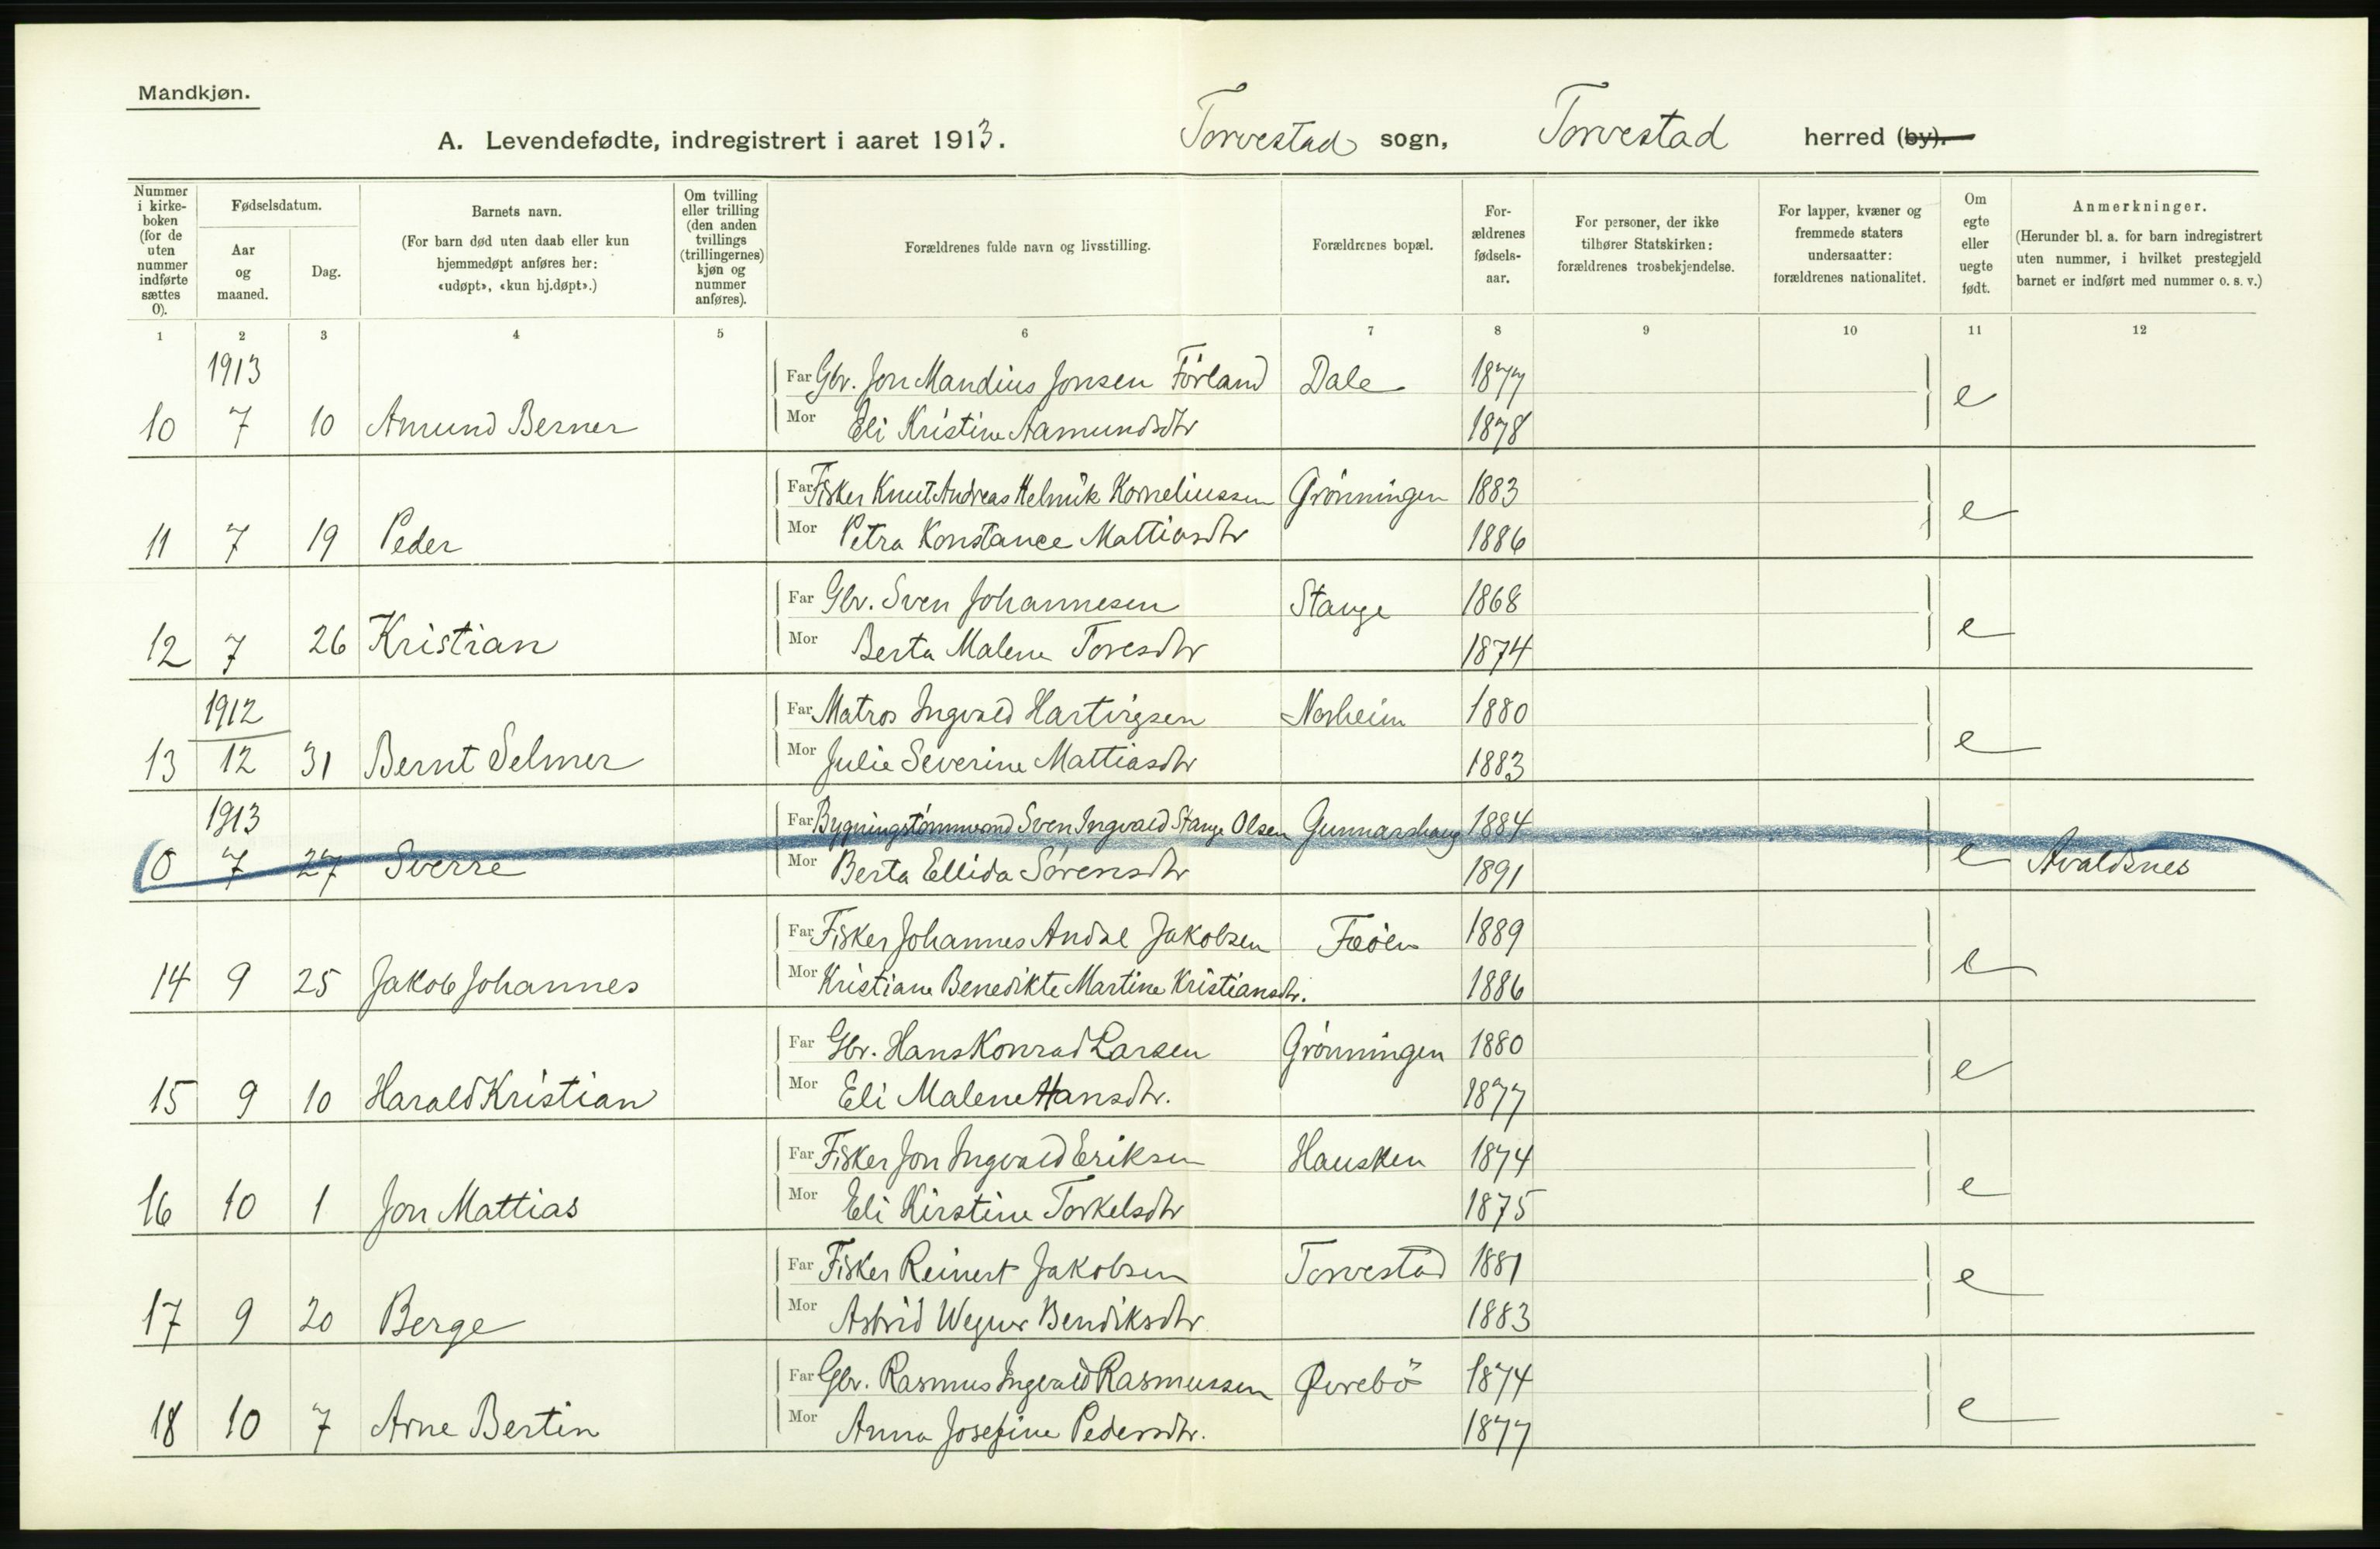 Mandkjøn.
A. Levendefødte, indregistrert i aaret 1913. Torvestad sogn, Torvestad herred (by).
Nummer i kirke-boken (for de uten nummer indførte sættes 0).
Fødselsdatum.
Aar og maaned.
Dag.
Barnets navn.
(For barn død uten daab eller kun hjemmedøpt anføres her: «udøpt», «kun hj.døpt».)
Om tvilling eller trilling (den anden tvillings (trillingernes) kjøn og nummer anføres).
Forældrenes fulde navn og livsstilling.
Forældrenes bopæl.
For-ældrenes fødsels-aar.
For personer, der ikke tilhører Statskirken: forældrenes trosbekjendelse.
For lapper, kvæner og fremmede staters undersaatter: forældrenes nationalitet.
Om egte eller uegte født.
Anmerkninger.
(Herunder bl. a. for barn indregistrert uten nummer, i hvilket prestegjeld barnet er indført med nummer o. s. v.)
1 2 3 4 5 6 7 8 9 10 11 12
1913 Far Gbr. Jon Mandius Jonsen Förland Dale 1877 e
10 7 10 Amund Berner Mor Eli Kristine Aamundsdtr 1878
Far Fisker Knut Andreas Helmik Korneliussen Grønningen 1883 e
11 7 19 Peder Mor Petra Konstance Mattiasdtr 1886
Far Gbr. Sven Johannesen Stange 1868 e
12 7 26 Kristian Mor Berta Malene Toresdtr 1874
1912 Far Matros Ingvald Hartvigsen Norheim 1880 e
13 12 31 Bernt Selmer Mor Julie Severine Mattiasdtr 1883
1913 Far Bygningstømmermand Sven Ingvald Stange Olsen Gunnarshaug 1884 e
0 7 27 Sverre Mor Berta Ellida Sörensdtr 1891 Avaldsnes
Far Fisker Johannes Andal Jakobsen Feöen 1889 e
14 9 25 Jakob Johannes Mor Kristiane Benedikte Martine Kristiansdtr. 1886
Far Gbr. Hans Konrad Larsen Grönningen 1880 e
15 9 10 Harald Kristian Mor Eli Malene Hansdtr. 1877
Far Fisker Jon Ingvald Eriksen Hausken 1874 e
16 10 1 Jon Mattias Mor Eli Kirstine Torkelsdtr 1875
Far Fisker Reinert Jakobsen Torvestad 1881 e
17 9 20 Berge Mor Astrid Wegner Bendiksdtr 1883
Far Gbr. Rasmus Ingvald Rasmussen Øvrebö 1874 e
18 10 7 Arne Bertin Mor Anna Josefine Pedersdtr. 1877